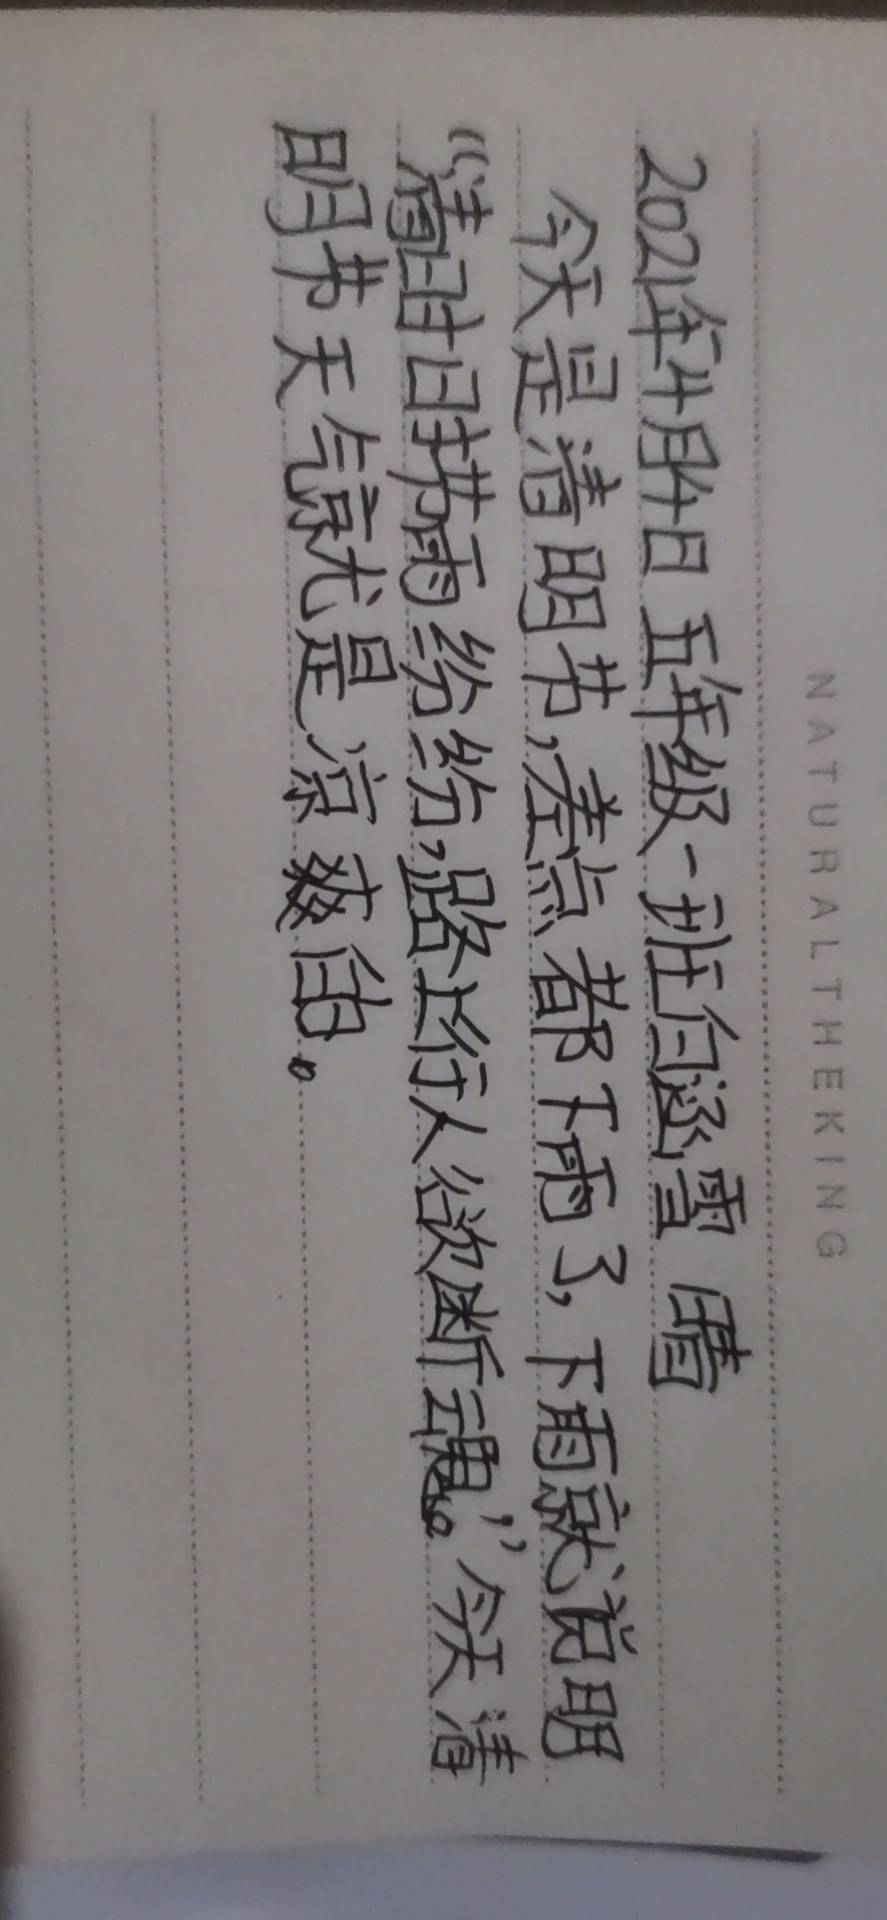 NATURALTHEKING
2021年4月4日 五年级一班白涵雪 晴
今天是清明节,差点都下雨了,下雨就说明
“清时日节雨纷纷,路上行人欲断魂。”今天清
明节天气就是凉爽的。